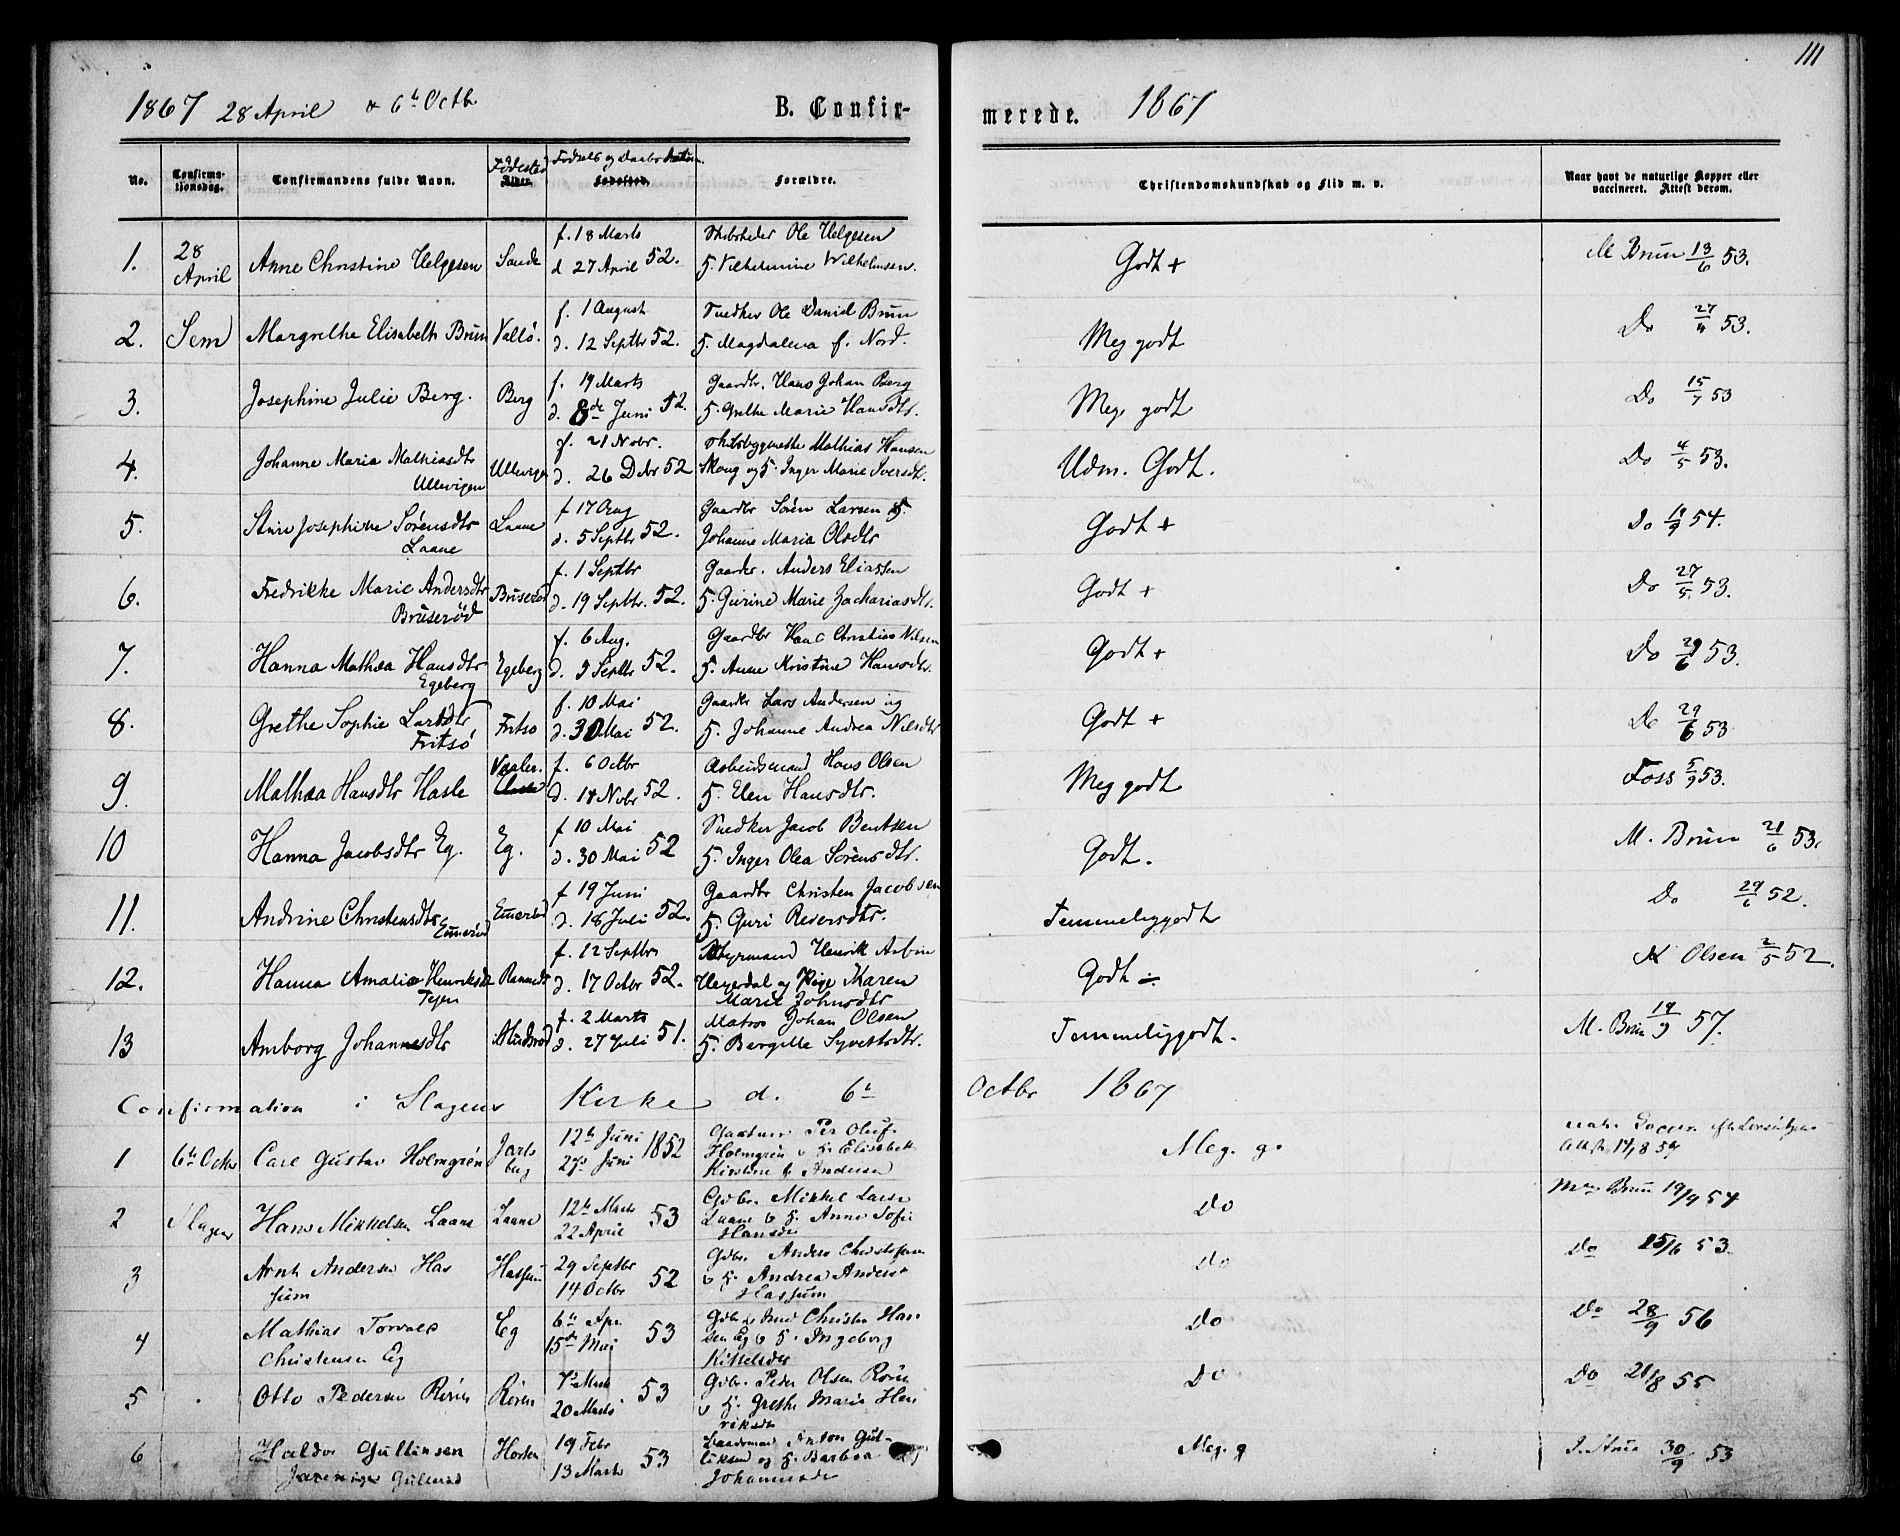 111
1867 28 April & 6te Octb. B. Confir-
merede. 1867
No. Confirma-tionsdag. Confirmandens fulde Navn. Fødested Fødsels og Daabs Datum. Forældre. Christendomskundskab og Flid m. v. Naar havt de naturlige Kopper eller vaccineret. Attest derom.
1. 28 April Anne Christine Helgesen Sande f. 18 Marts d 27 April 52. Ole Helgesen Vilhelmine Wilhelmsen. Godt + M Brun 13/6 53.
2. Sem Margrethe Elisabeth Brun Vallö. f. 1 August d. 12 Septbr 52. Snedker Ole Daniel Brun H. Magdalena f. Nord. Meg godt Do 53.
3. Josephine Julie Berg. Berg f. 19 Marts d. 8de Juni 52. Gaardbr. Hans Johan Berg H. Grethe Marie Hansdtr. Meg godt Do 53
4. Johanne Maria Mathiasdtr Ullevigen Ullevigen f. 21 Nobr. d. 26 Dcbr 52 Mathias Hansen Skoug og H. Inger Marie Iversdtr. Udm. Godt. Do 4/5 53.
5. Josephine Sörensdtr Laane Laane f 17 Aug d. 5 Septbr 52. Gaardbr Sören Larsen H. Johanne Maria Olsdtr Godt + Do 54.
6. Fredrikke Marie Andersdtr Bruserød Bruserød f. 1 Septbr d. 19 Septbr. 52. Gaardbr. Anders Eliassen H. Gurine Marie Zachariasdtr. Godt + Do 27/5 53.
7. Hanna Mathea Hansdtr Egeberg Egeberg f. 6 Aug. d. 5 Septbr 52. Gaardbr Hans Christian Nilsen H. Anne Kristine Hansdtr. Godt + Do 29/6 53.
8. Grethe Sophie Larsdtr Fritsø Fritsø f. 10 Mai d. 30 Mai 52. Gaardbr Lars Andersen og H. Johanne Andrea Nilsdtr Godt + Do 29/6 53
9. Mathea Hansdtr Hasle Vaaler. f. 6 Octbr d. 14 Nobr 52. Arbeidsmand Hans Olsen H. Elen Hansdtr. Meg godt Foss 5/9 53.
10 Hanna Jacobsdtr Eg. Eg. f 10 Mai d. 30 Mai 52 Snedker Jacob Bentsen H. Inger Olea Sörensdtr. Godt. M. Brun 21/6 53.
11. Andrine Christensdtr f 19 Juni d. 18 Juli 52. Gaardbr Christen Jacobsen H. Guri Reiersdtr. Temmeliggodt Do 29/6 52.
12. Hanna Amalie Henriksdtr Tejen f. 12 Septbr d. 17 Octbr 52. Styrmand Henrik Heyerdal og Pige Karen Marie Johnsdtr Godt ÷ Olsen 2/5 52.
13 Amborg Johannesdtr f. 2 Marts d. 27 Juli 51. Matros Johan Olsen H. Bergitte Syvertsdtr. Temmeliggodt. M. Brun 57.
Confirmation i Slagens Kirke d. 6te Octbr 1867
1 6te Octbr Carl Gustav Holmgrén Jarlsberg 12te Juni 27de Juni 1852 Gartner Per Oluf Holmgrén o H. Elisabeth Kirstine f. Andersen Meg. g.
2 Slagens Hans Mikkelsen Laane Laane 12te Marts 22 April 53 Gdbr. Mikkel Larsen Laane o H. Anne Sofie Hansdr Do Brun 19/9 54
3 Arnt Andersen Hassum Hassum 29 Septbr 14 Octbr 52 Gdbr. Anders Christofersen o H. Andrea Andersdr Hassum Do Do 15/6 53
4 Mathias Torvald Christensen Eg Eg 6te Apr 15de Mai 53 Christen Hansen Eg o H. Ingeborg Kittelsdr Do Do 28/9 56
5 Otto Pedersen Roren Roren Marts 20 Marts 53 Gdbr. Peder Olsen Roren o H. Grethe Marie Henriksdr Do Do 21/8 55
6 Haldor Gullihsen Horten 19 Febr 13 Marts 53 Anton Gulliksen og H. Barbra Johannesdr Meg. g 30/9 53